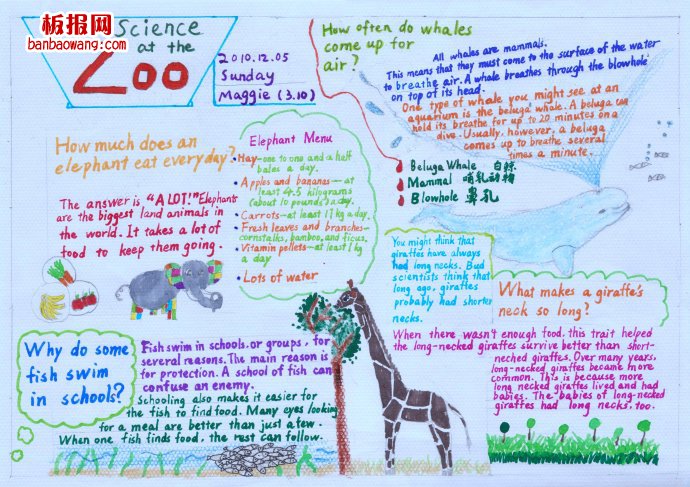 板报网
banbaowang.com
Science
at the
Zoo
2010.12.05
Sunday
Maggie (3.10)
How often do whales
come up for
air?
All whales are mammals.
This means that they must come to the surface of the water
to breathe air. A whale breathes through the blowhole
on top of its head.
One type of whale you might see at an
aquarium is the beluga whale. A beluga can
hold its breathe for up to 20 minutes on a
dive. Usually, however, a beluga
comes up to breathe several
times a minute.
Beluga Whale 白鲸
Mammal 哺乳动物
Blowhole 鼻孔
How much does an
elephant eat everyday?
The answer is "A LOT!" Elephants
are the biggest land animals in
the world. It takes a lot of
food to keep them going.
Elephant Menu
Hay—one to one and a half
bales a day.
Apples and bananas—at
least 4.5 kilograms
(about 10 pounds) a day.
Carrots—at least 1 kg a day.
Fresh leaves and branches—
cornstalks, bamboo, and ficus.
Vitamin pellets—at least 1 kg
a day
Lots of water
You might think that
giraffes have always
had long necks. But
scientists think that
long ago, giraffes
probably had shorter
necks.
What makes a giraffe's
neck so long?
When there wasn't enough food, this trait helped
the long-necked giraffes survive better than short-
neched giraffes. Over many years,
long-necked giraffes became more
common. This is because more
long necked giraffes lived and had
babies. The babies of long-necked
giraffes had long necks, too.
Why do some
fish swim
in schools?
Fish swim in schools, or groups, for
several reasons. The main reason is
for protection. A school of fish can
confuse an enemy.
Schooling also makes it easier for
the fish to find food. Many eyes looking
for a meal are better than just a few.
When one fish finds food, the rest can follow.